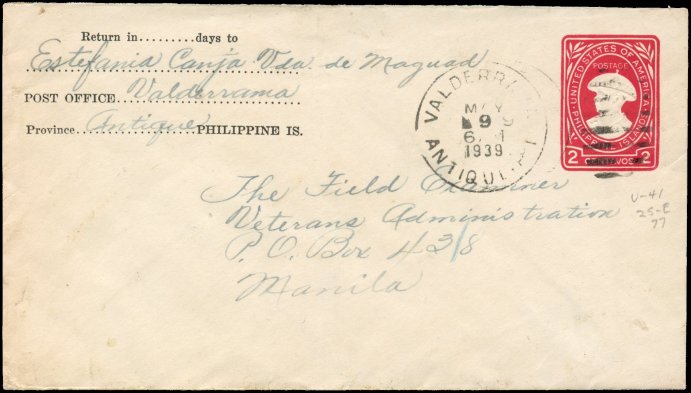 Return in..........days to
Estefania Canja Vda. de Maguad
POST OFFICE Valderrama
Province Antique PHILIPPINE IS.
UNITED STATES OF AMERICA
POSTAGE
PHILIPPINE ISLANDS
2 CENTAVOS 2
VALDERR
MAY
9
1939
ANTIQUE
The Field Examiner
Veterans Administration
P. O. Box 438
Manila
U-41
25-E
77